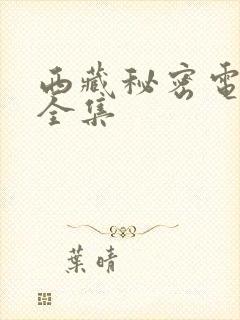 西藏秘密電
全集
葉晴